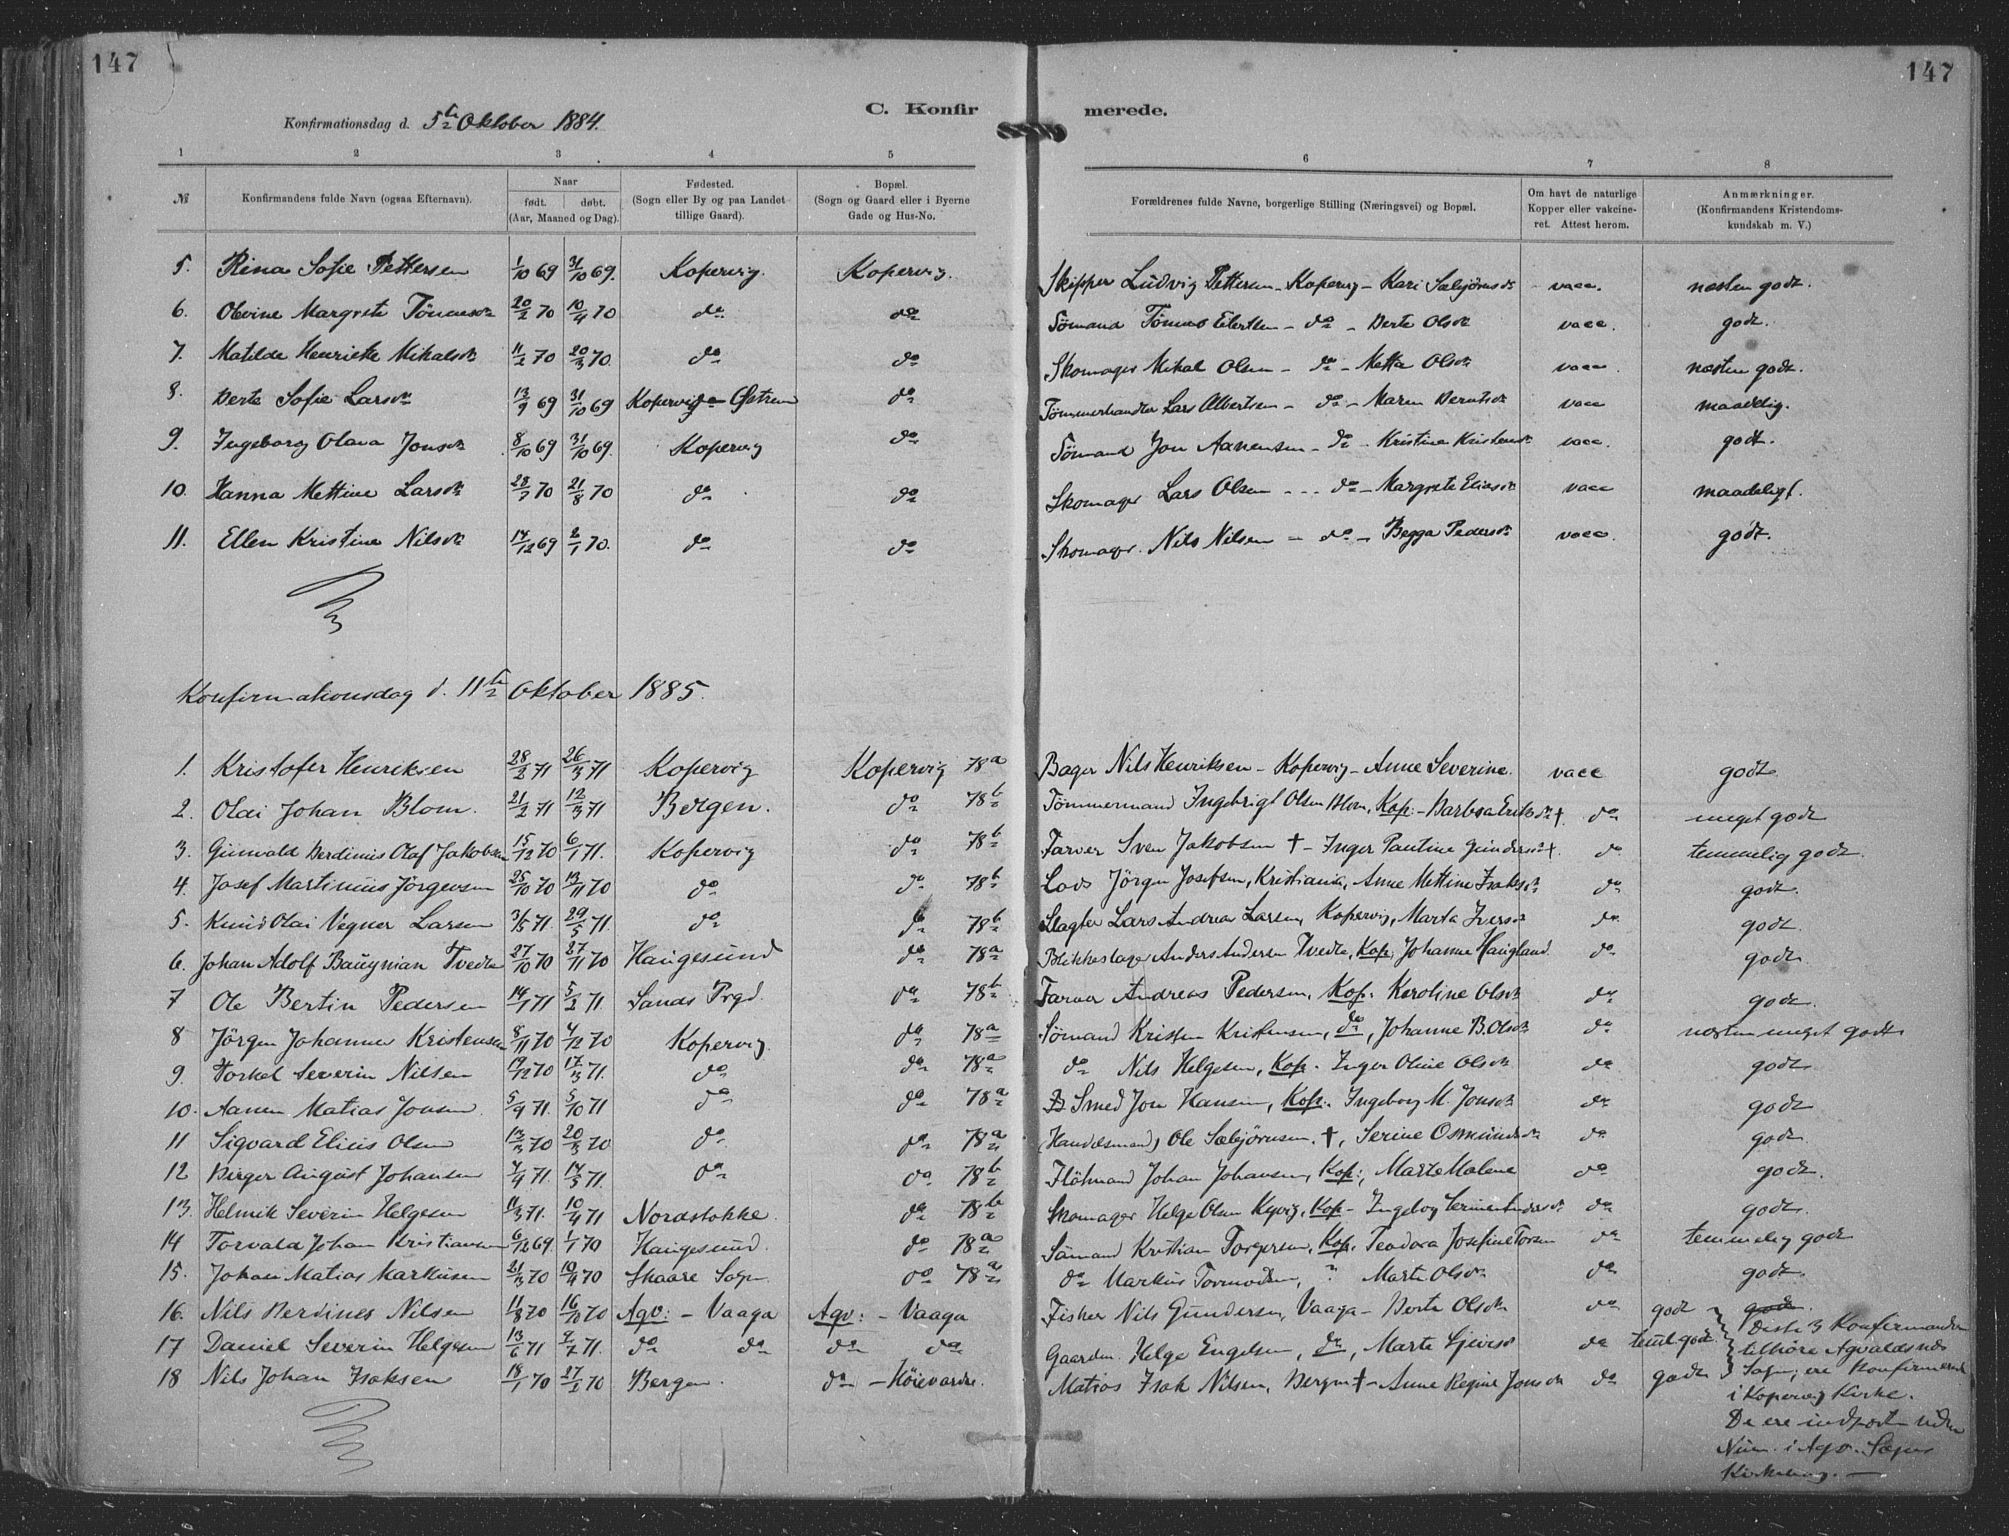 147
147
C. Konfirmerede.
Konfirmationsdag d. 5te Oktober 1884.
1 2 3 4 5 6 7 8
№ Konfirmandens fulde Navn (ogsaa Efternavn). Naar født. døbt. (Aar, Maaned og Dag). Fødested. (Sogn eller By og paa Landet tillige Gaard). Bopæl. (Sogn og Gaard eller i Byerne Gade og Hus-No. Forældrenes fulde Navne, borgerlige Stilling (Næringsvei) og Bopæl. Om havt de naturlige Kopper eller vakcineret. Attest herom. Anmærkninger. (Konfirmandens Kristendomskundskab m. V.)
5. Rina Sofie Pettersen 1/10 69 31/10 69. Kopervig. Kopervig. Skipper Ludvig Pettersen - Kopervig - Kari Sæbjörnsdr vacc. næsten godt.
6. Olevine Margrete Tönnesdr 20/2 70 10/4 70 do do Sømand Tönnes Eilertsen - do - Berte Olsdr vacc. godt.
7. Matilde Henriette Mikalsdr 11/2 70 20/3 70. do do Skomager Mikal Olsen - do - Metta Olsdr vacc. næsten godt.
8. Berte Sofie Larsdr 13/9 69 31/10 69 Kopervig - Østrem do Tømmerhandler Lars Albertsen - do - Maren Berntsdr vacc maadelig.
9. Ingeborg Olava Jonsdr 8/10 69 31/10 69. Kopervig do Sømand Jon Aanensen - do - Kristine Kristensdr vacc. godt.
10. Hanna Mettine Larsdr 28/7 70 21/8 70 do do Skomager Lars Olsen - - do - Margrete Eliasdr vacc maadeligt.
11. Ellen Kristine Nilsdr 14/12 69 2/1 70. do do Skomager. Nils Nilsen - do - Begga Pedersdr vacc. godt.
Konfirmationsdag d. 11te Oktober 1885.
1. Kristofer Henriksen 28/2 71 26/3 71 Kopervig Kopervig 78a Bager Nils Henriksen - Kopervig - Anne Severine. vacc godt
2. Olai Johan Blom. 21/2 71 12/3 71 Bergen. do 78b Tömmermand Ingebrigt Olsen Blom, Kop: - Barbra Eriksdr †. do meget godt
3. Gunvald Berdinus Olaf Jakobsen 15/12 70 6/1 71. Kopervig do 78b Farver Sven Jakobsen † - Inger Pautine Gundersdr †. do temmelig godt.
4. Josef Martinius Jörgensen 25/10 70 13/11 70 do do 78b Lods Jörgen Josefsen, Kristiania, Anne Mettine Isaksdr do godt.
5. Knud Olai Vegner Larsen 3/5 71. 29/5 71. do do 78b Slagter Lars Andreas Larsen, Kopervig, Marta Iversdr do godt.
6. Johan Adolf Baugnian Tvedte 27/10 70 27/11 70 Haugesund do 78a Blikkeslager Anders Andersen Tvedte, Kop, Johanne Haugland do godt.
7 Ole Bertin Pedersen 14/1 71 5/2 71. Sands Prgd. do 78b Farver Andreas Pedersen, Kop: Karoline Olsdr do godt.
8 Jörgen Johannes Kristensen 8/11 70 4/12 70 Kopervig. do 78a Sømand Kristen Kristensen, do, Johanne B. Olsdr do næsten meget godt
9. Torkel Severin Nilsen 19/12 70 17/3 71. do do 78a do Nils Helgesen, Kop. Inger Oline Olsdr do godt.
10. Aanen Matias Jonsen 5/9 71. 5/10 71 do do 78a Smed Jon Hansen, Kop. Ingeborg M. Jonsdr do godt
11 Sigvard Elius Olsen 13/3 70 20/3 70 do do 78a (Handelsmand) Ole Sæbjörnsen. †, Serine Osmundsdr do godt
12 Birger August Johansen 4/4 71. 14/5 71. do do 78b Flötmand Johan Johansen, Kop:, Marte Malene do godt.
13. Helmik Severin Helgesen 11/3 71. 10/4 71 Nordstokke. do 78b Skomager Helge Olsen Kyvig, Kop - Ingeborg Serine Andersdr do godt.
14 Torvald Johan Kristiansen 6/12 69. 1/1 70 Haugesund. do 78a Sømand Kristian Torgersen, Kop. Teodora Josefine Torsen do temmelig godt
15. Johan Matias Markusen 21/3 70 10/4 70 Skaare Sogn do 78a do Markus Tormodsen, " Marte Olsdr do godt.
16. Nils Berdines Nilsen 11/8 70 16/10 70 Agv: - Vaaga Agv: - Vaaga Fisker Nils Gundersen, Vaaga - Berte Olsdr do godt godt.
17 Daniel Severin Helgesen 13/6 71 9/7 71. do do do do Gaardm. Helge Engelsen, do, Marte Sjursdr do teml. godt
18 Nils Johan Isaksen 18/1 70 27/2 70 Bergen. do - Höievarde. Matros Isak Nilsen, Bergen † - Anne Regine Jonsdr do godt
Disse 3 Konfirmander
tilhöre Agvaldsnes
Sogn; ere Konfirmerede
i Kopervig Kirke.
De ere indførte uden
Num. i Agv. Sogns
Kirkebog. -